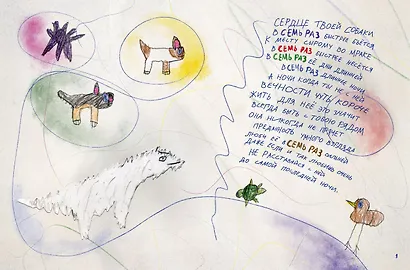 СЕРДЦЕ ТВОЕЙ СОБАКИ
В СЕМЬ РАЗ БЫСТРЕЕ БЬЁТСЯ
К МЕСТУ СЫРОМУ ВО МРАКЕ
В СЕМЬ РАЗ БЫСТРЕЕ НЕСЁТСЯ
В СЕМЬ РАЗ ЕЁ ДНИ ДЛИННЕЙ
В СЕМЬ РАЗ ДЛИННЕЕ НОЧИ
А НОЧИ КОГДА ТЫ НЕ С НЕЙ
ВЕЧНОСТИ ЧУТЬ КОРОЧЕ
ЖИТЬ ДЛЯ НЕЁ ЭТО ЗНАЧИТ
ВСЕГДА БЫТЬ С ТОБОЮ РЯДОМ
ОНА НИКОГДА НЕ ПРЯЧЕТ
ПРЕДАННОГО УМНОГО ВЗГЛЯДА
ЛЮБИ ЕЁ В СЕМЬ РАЗ СИЛЬНЕЙ
ДАЖЕ ЕСЛИ И ТАК ЛЮБИШЬ ОЧЕНЬ
НЕ РАССТАВАЙСЯ С НЕЙ
ДО САМОЙ ПОСЛЕДНЕЙ НОЧИ.